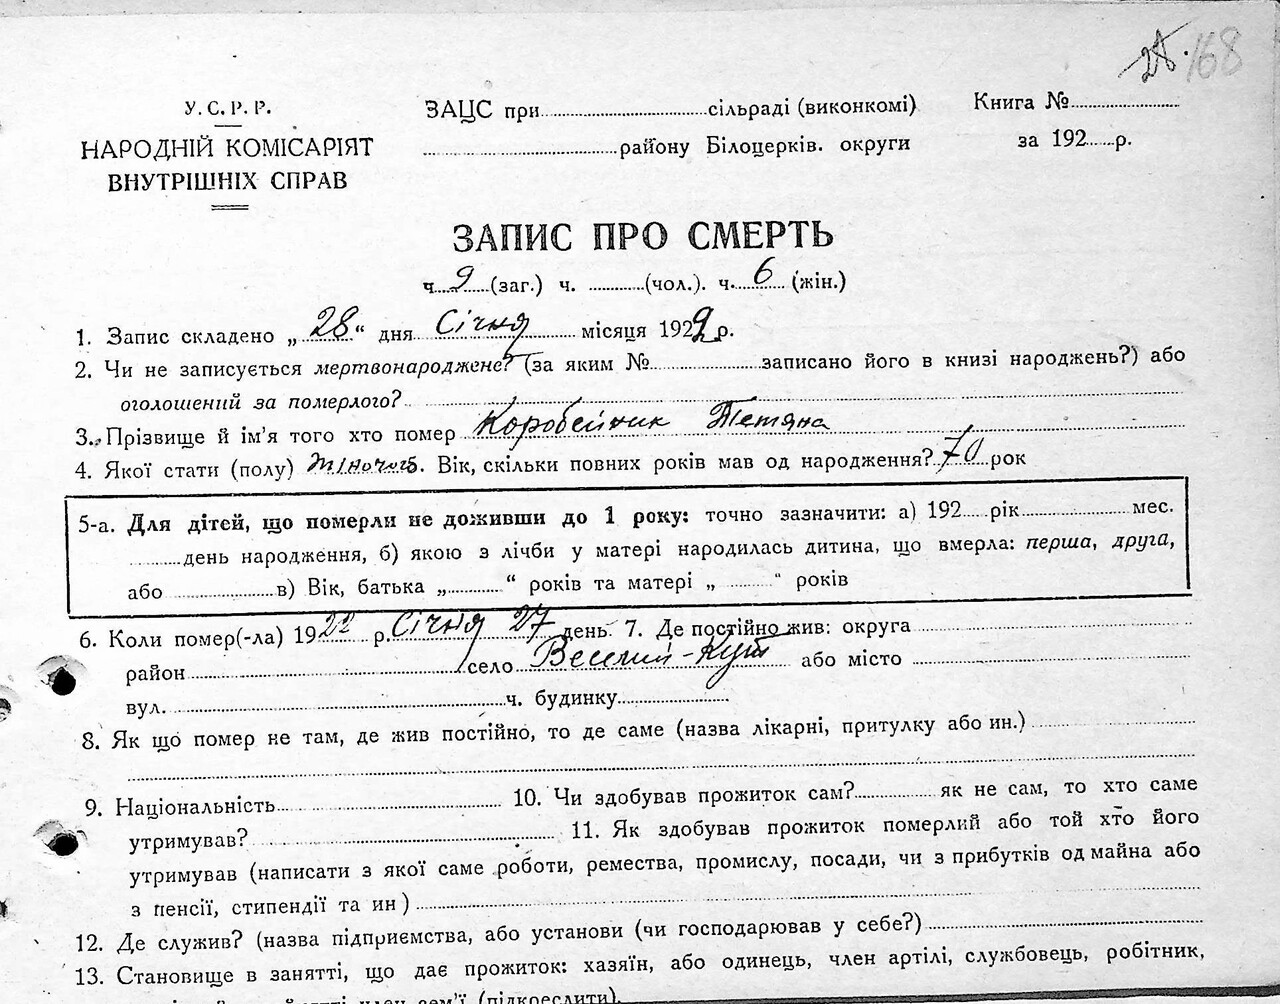 28. 168
У.С.Р.Р.
НАРОДНІЙ КОМІСАРІЯТ
ВНУТРІШНІХ СПРАВ
ЗАЦС при.....................сільраді (виконкомі)
.....................району Білоцерків. округи
Книга №..............
за 192......р.
ЗАПИС ПРО СМЕРТЬ
ч. 9 (заг.) ч. ..........(чол.). ч. 6 (жін.)
1. Запис складено „28“ дня Січня місяця 1922 р.
2. Чи не записується мертвонароджене? (за яким №..............записано його в книзі народжень?) або
оголошений за померлого?
3. Прізвище й ім'я того хто помер Коробейник Тетяна
4. Якої стати (полу) жіночого. Вік, скільки повних років мав од народження? 70 рок
5-а. Для дітей, що померли не доживши до 1 року: точно зазначити: а) 192.....рік..............мес.
.......день народження, б) якою з лічби у матері народилась дитина, що вмерла: перша, друга,
або ..............в) Вік, батька „.........“ років та матері „.........“ років
6. Коли помер(-ла) 1922 р. Січня 27 день. 7. Де постійно жив: округа
район.....................село Веселий-Кут або місто
вул. .....................ч. будинку..............
8. Як що помер не там, де жив постійно, то де саме (назва лікарні, притулку або ин.)
9. Національність..................... 10. Чи здобував прожиток сам?.............. як не сам, то хто саме
утримував? ..................... 11. Як здобував прожиток померлий або той хто його
утримував (написати з якої саме роботи, ремества, промислу, посади, чи з прибутків од майна або
з пенсії, стипендії та ин)
12. Де служив? (назва підприємства, або установи (чи господарював у себе?)
13. Становище в занятті, що дає прожиток: хазяїн, або одинець, член артілі, службовець, робітник,
член сем'ї (підкреслити).